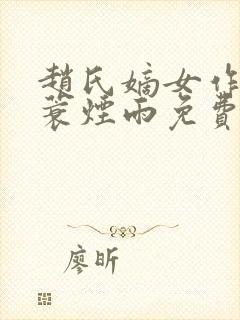 趙氏嫡女作
蓑煙雨免費
廖昕